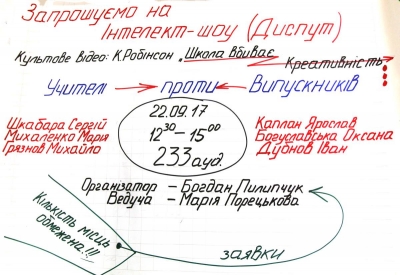 Запрошуємо на
Інтелект-шоу (Диспут)
Культове відео: К.Робінсон „Школа вбиває
Креативність"
Учителі → проти ← Випускників
22.09.17
12³⁰-15⁰⁰
233 ауд.
Шкабара Сергій
Михаленко Марія
Грязнов Михайло
Каплан Ярослав
Богуславська Оксана
Дубнов Іван
Організатор – Богдан Пилипчук
Ведуча – Марія Порецькова
Кількість місць
обмежена!!!
заявки